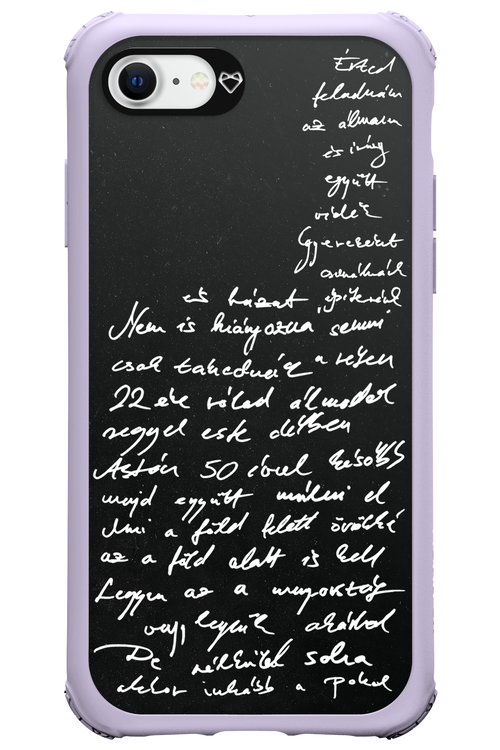 Érted
feladnám
az álmam
és így
együtt
Gyerekeket
csinálnánk
és házat építenénk
Nem is hiányozna semmi
csak takednéz a részen
22 éve rólad álmodok
reggel este délben
Aztán 50 évvel később
majd együtt múlni el
Ami a föld felett örökké
az a föld alatt is kell
Legyen az a mennyország
vagy legyünk akárhol
De nélküled soha
akkor inkább a Pokol